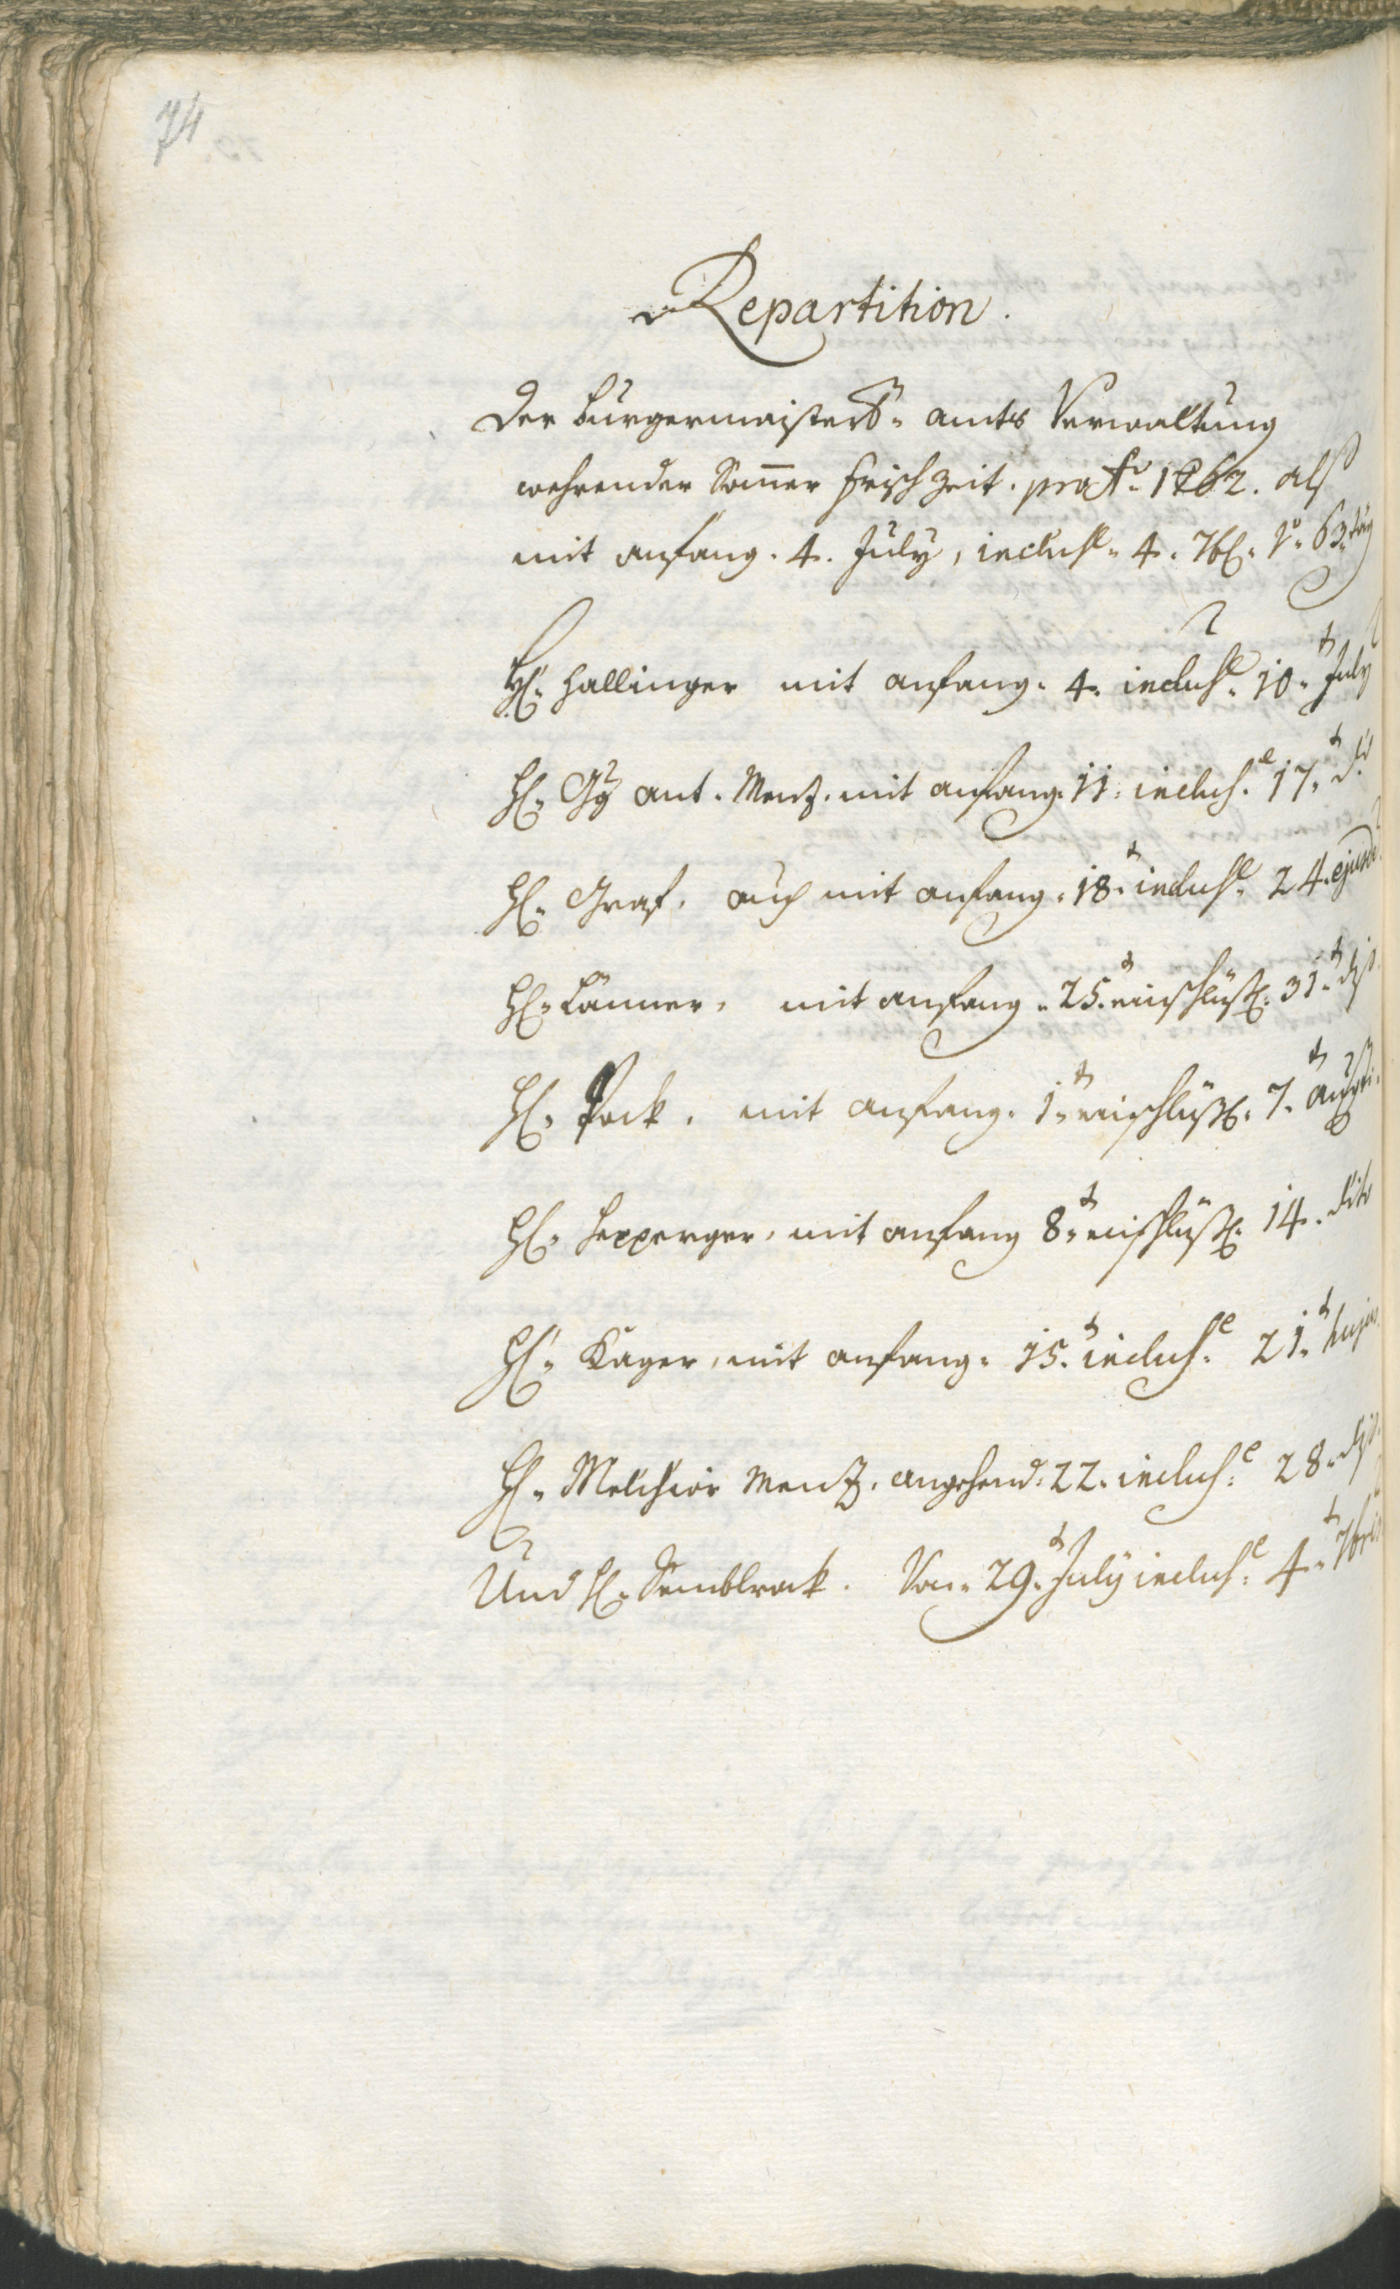 74
Repartition.
Der Burgermaisters- amts Verwaltung
wehrender Somer frisch Zeit. pro Ao. 1762. alß
mit anfang. 4. July, inclus.e 4. 7b. 63. täg
H. Hallinger mit anfang. 4. inclus.e 10.t July
H. Gg ant. Menz. mit anfang. 11. inclus.e 17.t do
H. Graf. auch mit anfang. 18.t inclus.e 24. ejusd
H. Länner, mit anfang. 25.t einschlüß. 31.t diß
H. Pock. mit anfang. 1.t einschlüß. 7.t augti.
H. mit anfang 8.t einschlüß. 14. dito
H. Kager, mit anfang. 15.t inclus.e 21.t hujus
H. Melchior Menz. angehend. 22. inclus.e 28. diß
Und H. Semblrock. Von. 29.t July inclus.e 4.t 7bris